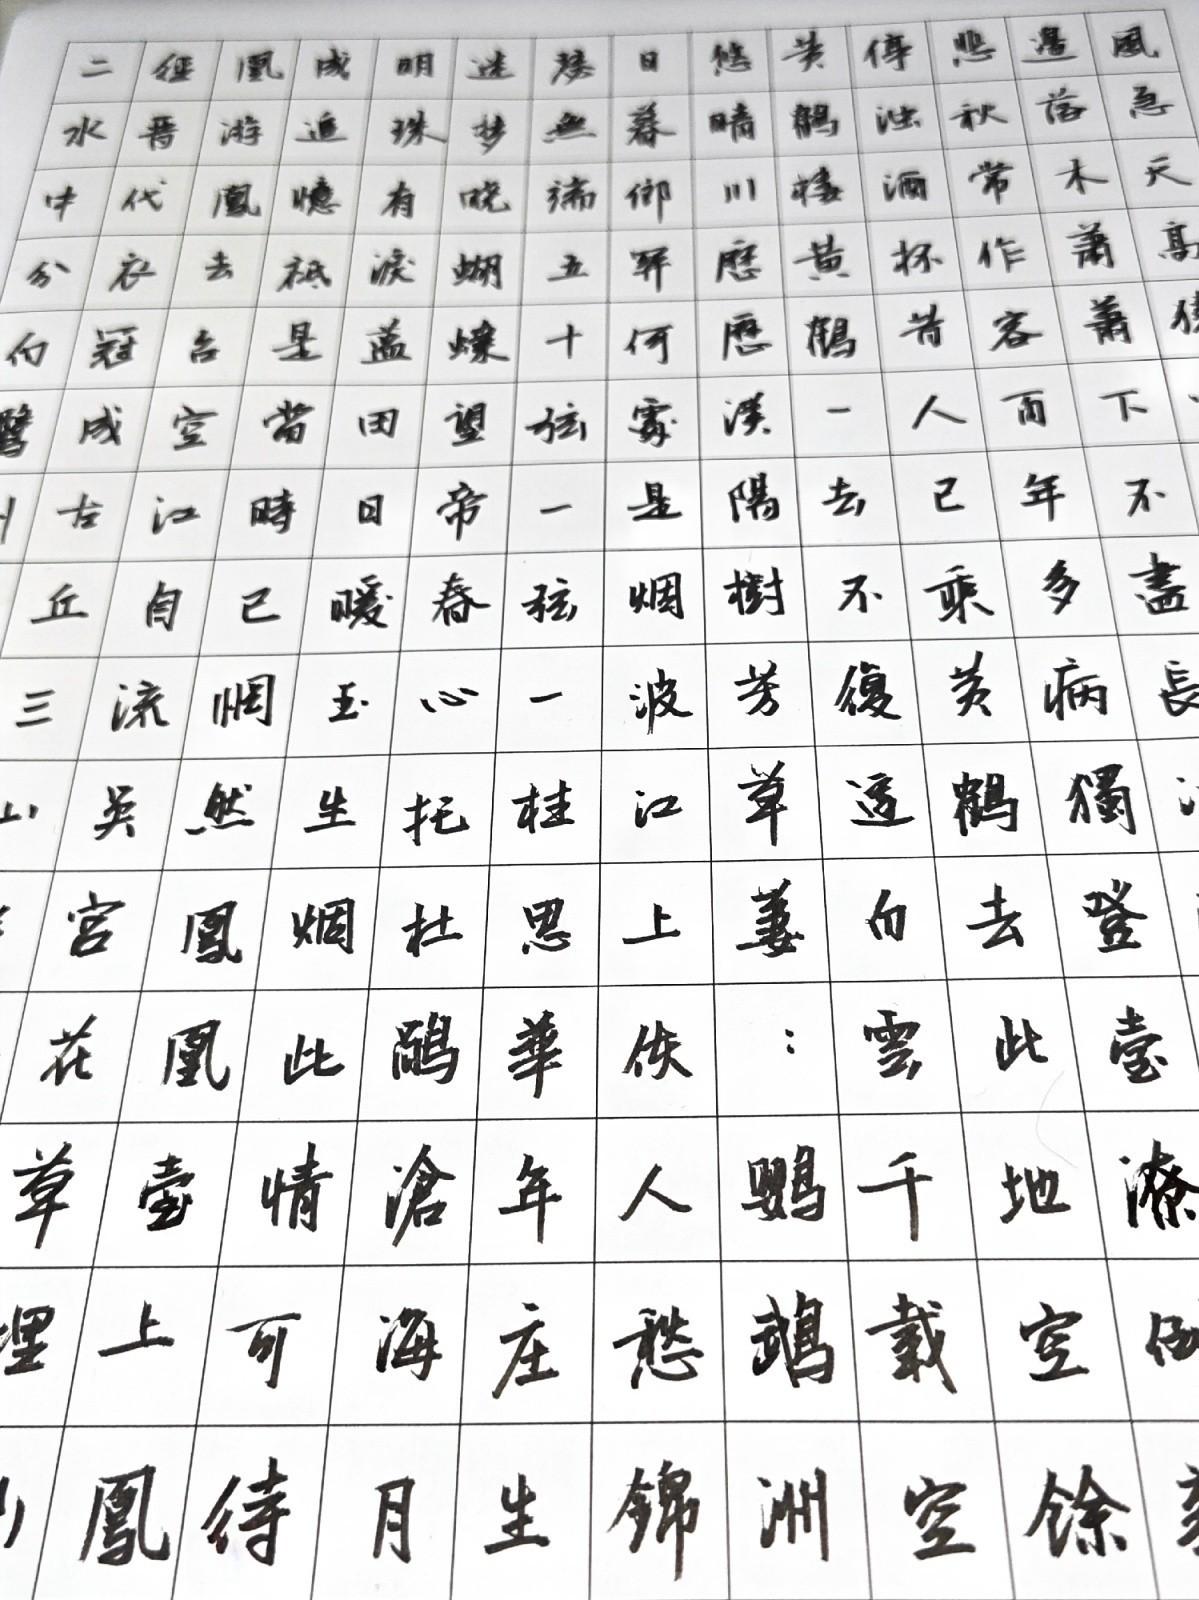 風急天高猿
邊落木蕭蕭下不盡長江
悲秋常作客百年多病獨登臺潦倒新
停浊酒杯昔人已乘黄鶴去此地空馀
黄鶴樓黄鶴一去不復返白雲千載空
悠晴川歷歷漢陽樹芳草萋:鹦鵡洲
日暮鄉關何處是烟波江上使人愁錦
瑟無端五十弦一弦一柱思華年庄生
迷梦晓蝴蝶望帝春心托杜鵑滄海月
明珠有淚藍田日暖玉生烟此情可待
成追憶祇是當時已惘然鳳凰臺上鳳
凰游鳳去台空江自流吳宮花草埋幽
徑晉代衣冠成古丘三山
二水中分白鷺洲